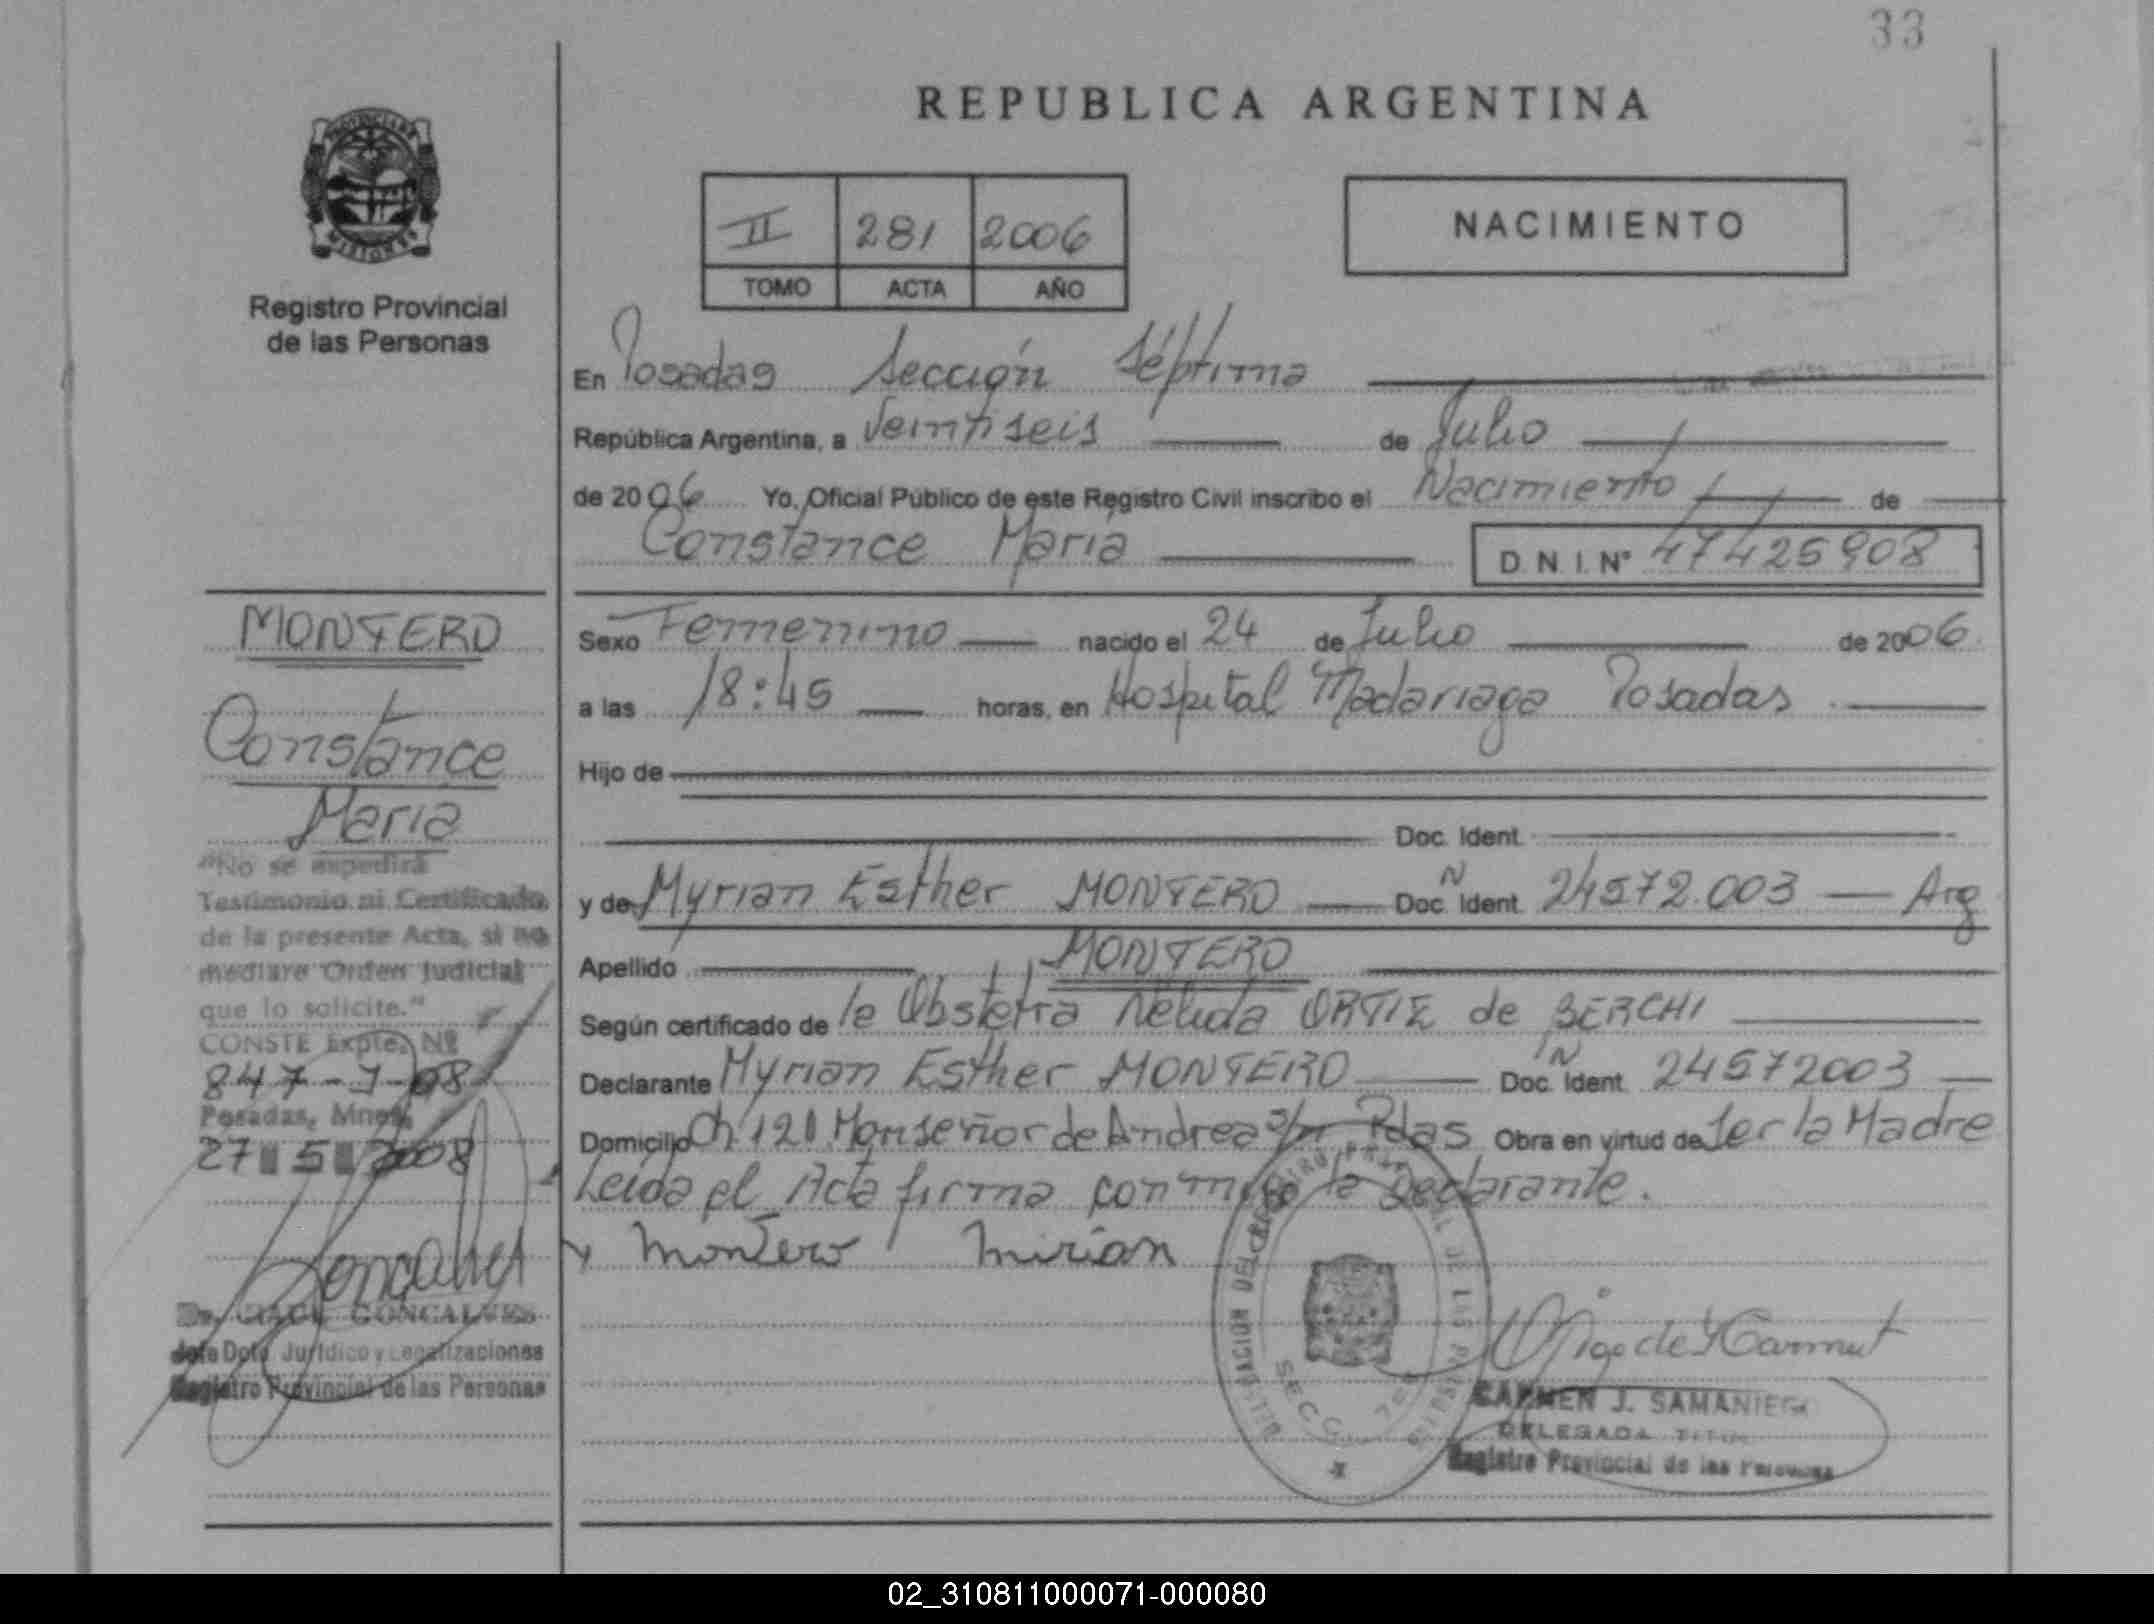 33
REPUBLICA ARGENTINA
PROVINCIA DE
MISIONES
Registro Provincial
de las Personas
II 281 2006
TOMO ACTA AÑO
NACIMIENTO
En Posadas Sección Séptima
República Argentina, a Veintiseis de Julio
de 2006 Yo, Oficial Público de este Registro Civil inscribo el Nacimiento de
Constance Maria D.N.I. N° 47425908
MONTERO
Constance
Maria
"No se expedirá
Testimonio ni Certificado
de la presente Acta, si no
mediare Orden Judicial
que lo solicite."
CONSTE Expte. Nº
847-J-08
Posadas, Mnes,
27 5 2008
Goncalves
Dr. RAUL GONCALVES
Jefe Dpto Jurídico y Legalizaciones
Registro Provincial de las Personas
Sexo Femenino nacido el 24 de Julio de 2006
a las 18:45 horas, en Hospital Madariaga Posadas
Hijo de
Doc. Ident.
y de Myrian Esther MONTERO Doc. N Ident. 24572.003 Arg
Apellido MONTERO
Según certificado de la Obstetra Nelida ORTIZ de BERCHI
Declarante Myrian Esther MONTERO Doc. N Ident. 24572003
Domicilio Ch 120 Monseñor de Andrea s/n Pdas Obra en virtud de Ser la Madre
Leida el Acta firma conmigo la declarante.
Montero Mirian
DELEGACION DEL REGISTRO PROVINCIAL DE LAS PERSONAS
SECC
CARMEN J. SAMANIEGO
DELEGADA
Registro Provincial de las Personas
02_310811000071-000080